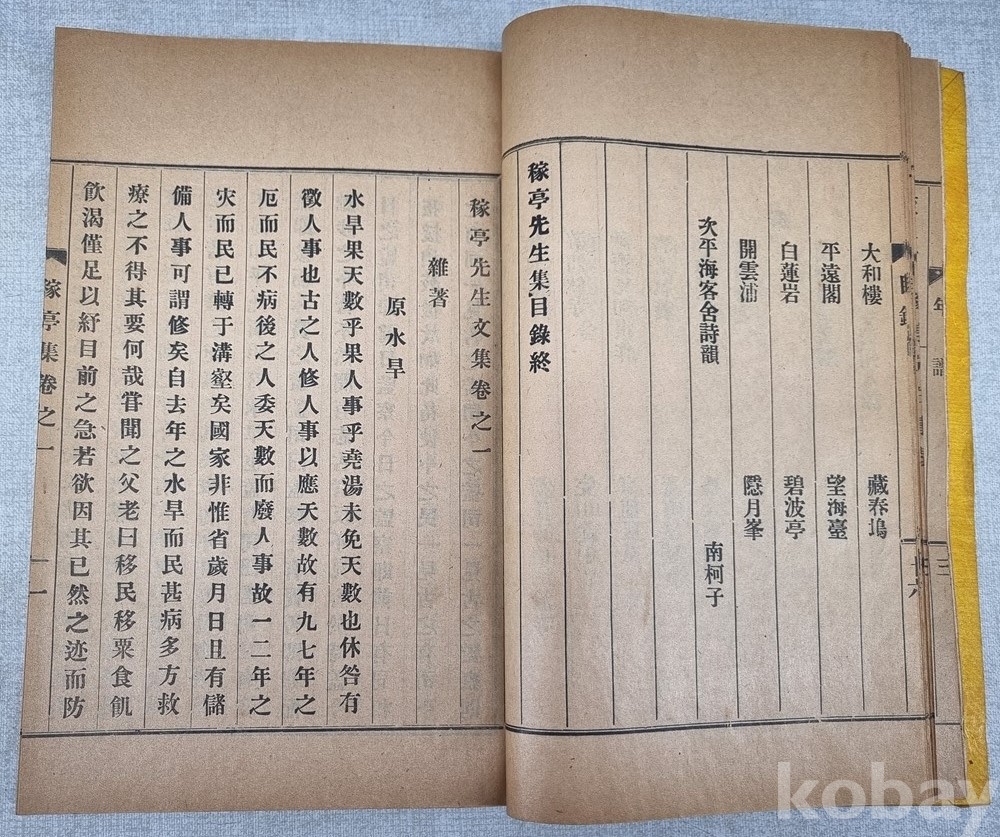 大和樓 藏春塢
平遠閣 望海臺
白蓮岩 碧波亭
開雲浦 隱月峯
次平海客舍詩韻 南柯子
稼亭先生集目錄終
稼亭先生文集卷之一
雜著
原水旱
水旱果天數乎果人事乎堯湯未免天數也休咎有
徵人事也古之人修人事以應天數故有九七年之
厄而民不病後之人委天數而廢人事故一二年之
灾而民已轉于溝壑矣國家非惟省歲月日且有儲
備人事可謂修矣自去年之水旱而民甚病多方救
療之不得其要何哉甞聞之父老曰移民移粟食飢
飮渴僅足以紓目前之急若欲因其已然之迹而防
稼亭集卷之一 一
kobay